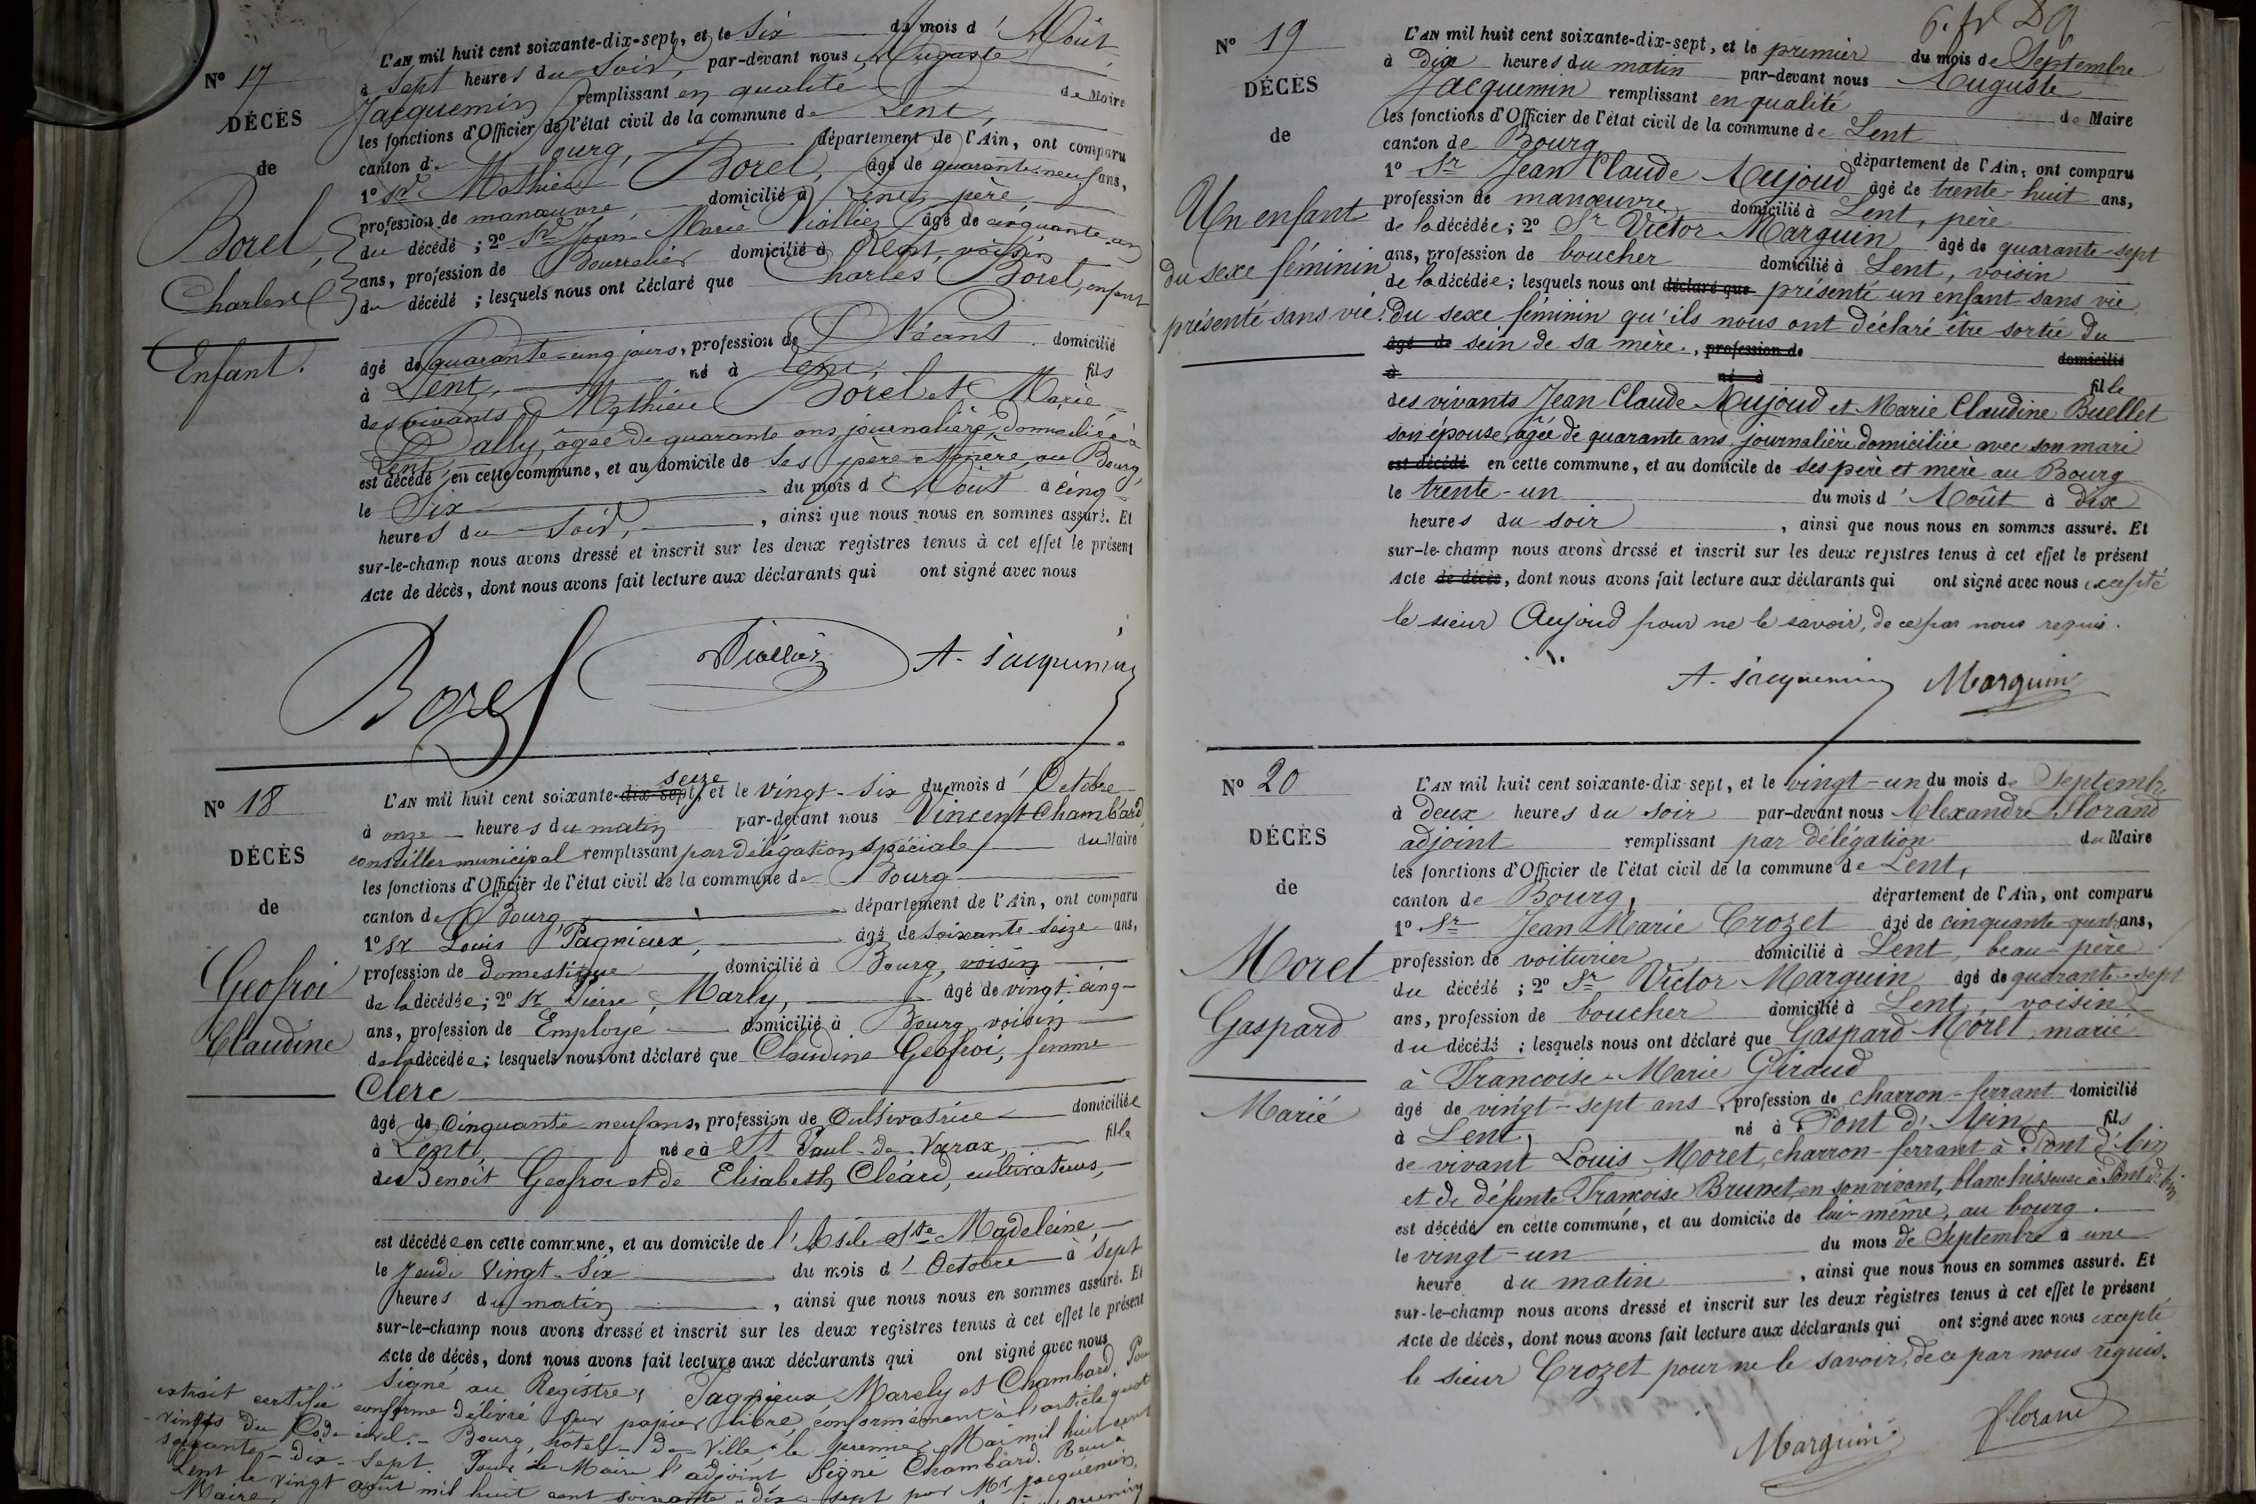 N° 17
DÉCÈS
de
Borel,
Charles
Enfant.
L'AN mil huit cent soixante-dix-sept, et le Six du mois d'Août,
à Sept heures du Soir, par-devant nous Auguste
Jacquemin remplissant en qualité de Maire
les fonctions d'Officier de l'état civil de la commune de Lent,
canton de Bourg, département de l'Ain, ont comparu
1° Sr Mathieu Borel, âgé de quarante-neuf ans,
profession de manœuvre, domicilié à Lent, père
du décédé ; 2° Sr Jean-Marie Viollier âgé de cinquante-un
ans, profession de Bourrelier domicilié à Lent, voisin
du décédé ; lesquels nous ont déclaré que Charles Borel, enfant
âgé de quarante-cinq jours, profession de Néant domicilié
à Lent, né à Lent, fils
des vivants Mathieu Borel et Marie
Dally, âgée de quarante ans, journalière, domiciliée à
Lent
est décédé en cette commune, et au domicile de ses père et mère, au Bourg,
le Six du mois d'Août à cinq
heures du Soir, ainsi que nous nous en sommes assuré. Et
sur-le-champ nous avons dressé et inscrit sur les deux registres tenus à cet effet le présent
Acte de décès, dont nous avons fait lecture aux déclarants qui ont signé avec nous
Borel Viollier A. Jacquemin
N° 18
DÉCÈS
de
Geofroi
Claudine
seize
L'AN mil huit cent soixante-dix-sept, et le vingt-six du mois d'Octobre
à onze heures du matin par-devant nous Vincent Chambard,
conseiller municipal remplissant par délégation spéciale du Maire
les fonctions d'Officier de l'état civil de la commune de Bourg
canton de Bourg, département de l'Ain, ont comparu
1° Sr Louis Pagnieux, âgé de soixante-seize ans,
profession de domestique domicilié à Bourg, voisin
de la décédée ; 2° Sr Pierre Marly, âgé de vingt-cinq
ans, profession de Employé domicilié à Bourg voisin
de la décédée ; lesquels nous ont déclaré que Claudine Geofroi, femme
Clerc
âgé de Cinquante-neuf ans, profession de Cultivatrice domiciliée
à Lent, née à St Paul-de-Varax, fille
des Benoît Geofroi et de Elisabeth Cléard, cultivateurs,
est décédée en cette commune, et au domicile de l'Asile Ste Madeleine,
le Jeudi Vingt-Six du mois d'Octobre à sept
heures du matin, ainsi que nous nous en sommes assuré. Et
sur-le-champ nous avons dressé et inscrit sur les deux registres tenus à cet effet le présent
Acte de décès, dont nous avons fait lecture aux déclarants qui ont signé avec nous
Signé au Registre, Pagnieux Marely et Chambard. Pour
extrait certifié conforme délivré sur papier libre, conformément à l'article quatre
-vingts du Code civil. - Bourg, hôtel-de-Ville, le premier Mai mil huit cent
soixante-dix-sept. Pour le Maire l'adjoint Signé Chambard. Reçu à
Lent le vingt août mil huit cent soixante-dix-sept par Mr Jacquemin,
Maire,
6. fr D9
N° 19
DÉCÈS
de
Un enfant
du sexe féminin
présenté sans vie.
L'AN mil huit cent soixante-dix-sept, et le premier du mois de Septembre
à Dix heures du matin par-devant nous Auguste
Jacquemin remplissant en qualité de Maire
les fonctions d'Officier de l'état civil de la commune de Lent
canton de Bourg département de l'Ain, ont comparu
1° Sr Jean Claude Aujoud âgé de trente-huit ans,
profession de manœuvre domicilié à Lent, père
de la décédée ; 2° Sr Victor Marguin âgé de quarante-sept
ans, profession de boucher domicilié à Lent, voisin
de la décédée ; lesquels nous ont déclaré que présenté un enfant sans vie
du sexe féminin qu'ils nous ont déclaré être sortie du
âgé de sein de sa mère., profession de domicilié
à né à fille
des vivants Jean Claude Aujoud et Marie Claudine Buellet
son épouse, âgée de quarante ans, journalière domiciliée avec son mari
est décédé en cette commune, et au domicile de ses père et mère au Bourg
le trente-un du mois d'Août à dix
heures du soir, ainsi que nous nous en sommes assuré. Et
sur-le-champ nous avons dressé et inscrit sur les deux registres tenus à cet effet le présent
Acte de décès, dont nous avons fait lecture aux déclarants qui ont signé avec nous excepté
le sieur Aujoud pour ne le savoir, de ce par nous requis.
A. Jacquemin Marguin
N° 20
DÉCÈS
de
Moret
Gaspard
Marié
L'AN mil huit cent soixante-dix-sept, et le vingt-un du mois de Septembre
à deux heures du soir par-devant nous Alexandre Florand
adjoint remplissant par délégation du Maire
les fonctions d'Officier de l'état civil de la commune de Lent,
canton de Bourg, département de l'Ain, ont comparu
1° Sr Jean Marie Crozet âgé de cinquante-quatre ans,
profession de voiturier, domicilié à Lent, beau-père
du décédé ; 2° Sr Victor Marguin âgé de quarante-sept
ans, profession de boucher domicilié à Lent voisin
du décédé ; lesquels nous ont déclaré que Gaspard Moret, marié
à Françoise-Marie Giraud
âgé de vingt-sept ans, profession de charron-ferrant domicilié
à Lent, né à Pont d'Ain, fils
de vivant Louis Moret, charron-ferrant à Pont d'Ain
et de défunte Françoise Brunet, en son vivant, blanchisseuse à Pont d'Ain
est décédé en cette commune, et au domicile de lui-même, au bourg.
le vingt-un du mois de Septembre à une
heure du matin, ainsi que nous nous en sommes assuré. Et
sur-le-champ nous avons dressé et inscrit sur les deux registres tenus à cet effet le présent
Acte de décès, dont nous avons fait lecture aux déclarants qui ont signé avec nous excepté
le sieur Crozet pour ne le savoir, de ce par nous requis.
Marguin Florand